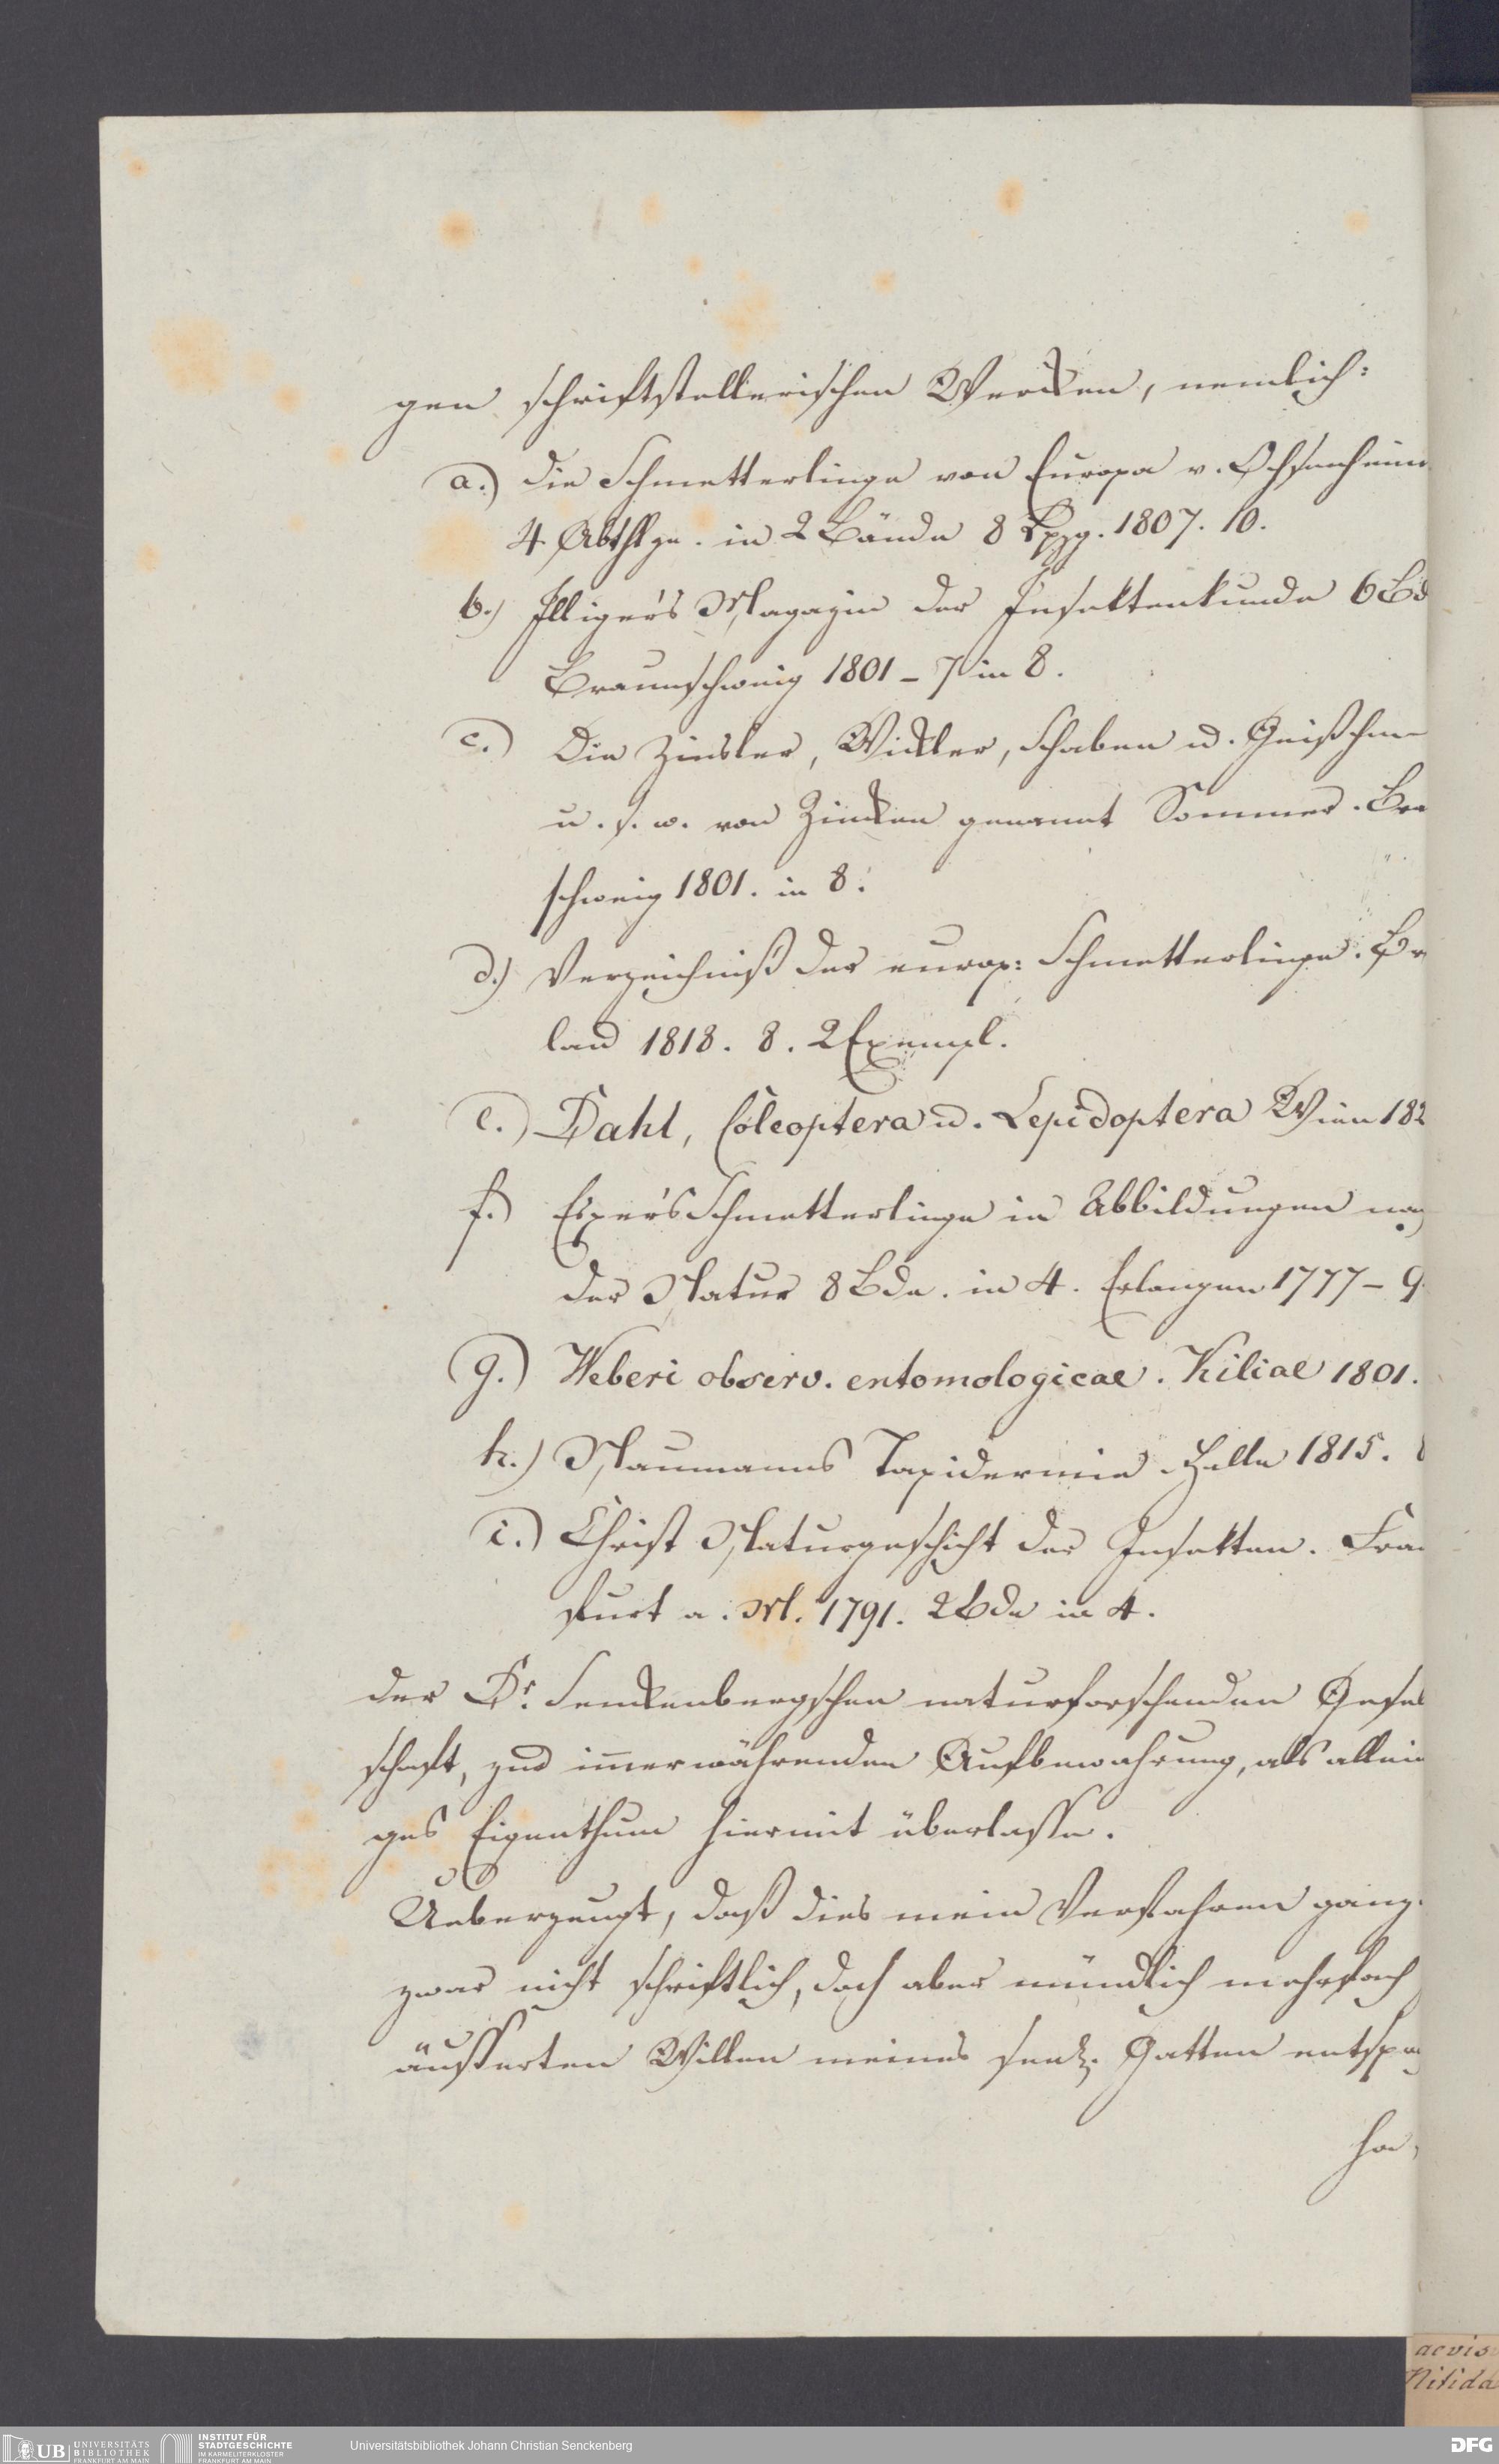 gen schriftstellerischen Werken, nemlich:
a.) die Schmetterlinge von Europa v. Ochsenheim
4. Abthlge. in 2 Bände 8 Lpzg. 1807. 10.
b.) Illiger's Magazin der Insektenkunde 6 Bd
Braunschweig 1801 – 7 in 8.
c.) Die Zinsler, Wickler, Schaben u. Geißchen
u. s. w. von Zincken genannt Sommer. Bra
schweig 1801. in 8.
d.) Verzeichniß der europ: Schmetterlinge. Br
lau 1818. 8. 2 Exempl.
e.) Dahl, Coleoptera u. Lepidoptera Wien 182
f.) Esper's Schmetterlinge in Abbildungen nach
der Natur 8 Bde. in 4. Erlangen 1777 – 9
g.) Weberi observ. entomologicae. Kiliae 1801.
h.) Naumanns Taxidermie. Halle 1815. 8
i.) Christ Naturgeschicht der Insekten. Fran
furt a. M. 1791. 2 Bde in 4.
der Dr. Senckenbergschen naturforschenden Gesel
schaft, zur im̅erwährenden Aufbewahrung, als allein
ges Eigenthum hiermit überlasse.
Ueberzeugt, daß dies mein Verfahren ganz
zwar nicht schriftlich, doch aber mündlich mehrfach
äusserten Willen meines seel. Gatten entspre
ha
aevis
Nitida
UB UNIVERSITÄTS
BIBLIOTHEK
FRANKFURT AM MAIN
INSTITUT FÜR
STADTGESCHICHTE
IM KARMELITERKLOSTER
FRANKFURT AM MAIN
Universitätsbibliothek Johann Christian Senckenberg
DFG